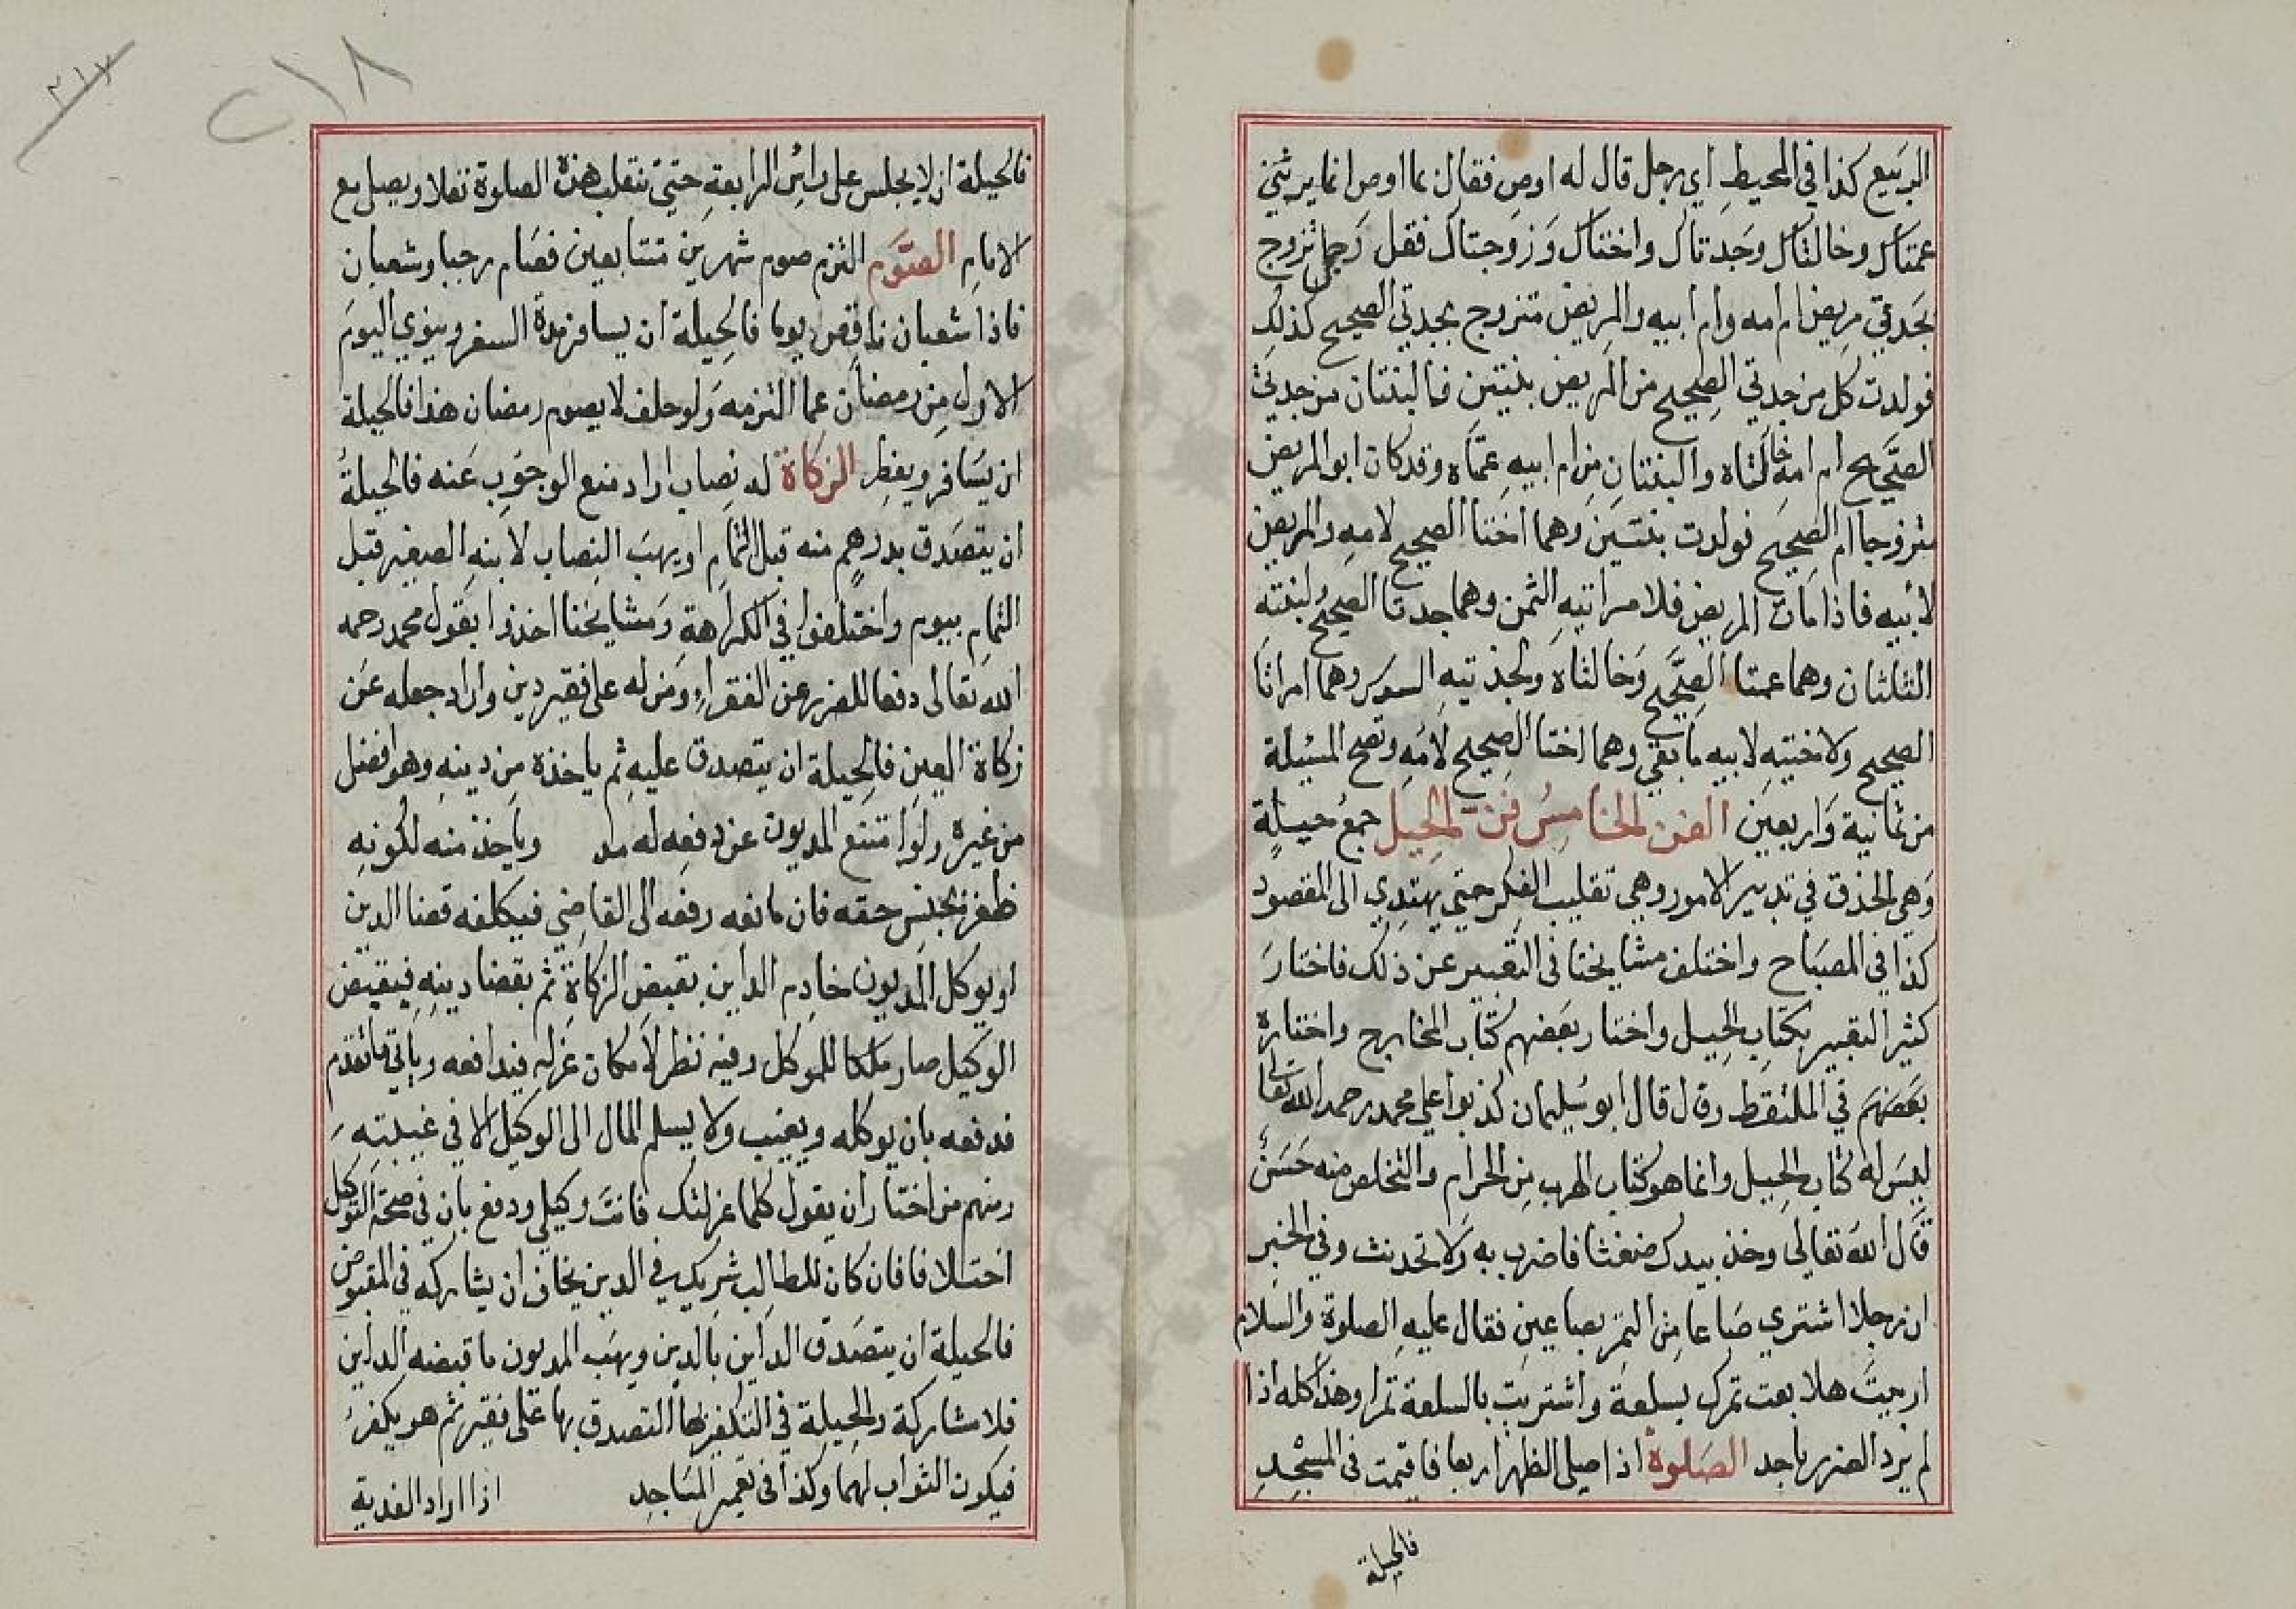 الربيع كذا في المحيط اي رجل قال له اوص فقال بما اوص انما يرثني
عمتاك وخالتاك وجدتاك واختاك وزوجتاك فقل رجل تزوج
بجدتي مريض ام امه وام ابيه والمريض متزوج بجدتي الصحيح كذلك
فولدت كل من جدتي الصحيح من المريض بنتين فالبنتان من جدتي
الصحيح ام امه خالتاه والبنتان من ام ابيه عمتاه وقد كان ابو المريض
متزوجا ام الصحيح فولدت بنتين وهما اختا الصحيح لامه والمريض
لابيه فاذا مات المريض فلامراتيه الثمن وهما جدتا الصحيح ولبنته
الثلثان وهما عمتا الصحيح وخالتاه ولجدتيه السدس وهما امراتا
الصحيح ولاختيه لابيه ما بقي وهما اختا الصحيح لامه وتصح المسئلة
من ثمانية واربعين الفن الخامس فن الحيل جمع حيلة
وهي الحذق في تدبير الامور وهي تقليب الفكر حتي يهتدي الى المقصود
كذا في المصباح واختلف مشايخنا في التعبير عن ذلك فاختار
كثير التعبير بكتاب الحيل واختار بعضهم كتاب المخارج واختاره
بعضهم في الملتقط وقال قال ابو سليمان كذبوا علي محمد رحمه الله تعالى
ليس له كتاب الحيل وانما هو كتاب الهرب من الحرام والتخلص منه حسن
قال الله تعالى وخذ بيدك ضغثا فاضرب به ولا تحدنث وفي الخبر
ان رجلا اشتري صاعا من التمر بصاعين فقال عليه الصلوة والسلام
اربيت هلا بعت تمرك بسلعة واشتريت بالسلعة تمرا وهذا كله اذا
لم يرد الضرر باحد الصلوة اذا صلى الظهر اربعا فاقيمت في المسجد
فالحيلة
٢١٧
٢١٨
فالحيلة ان لا يجلس على راس الرابعة حتي تنقلب هذه الصلوة نفلا ويصلي مع
الامام الصوم التزم صوم شهرين متتابعين فصام رجبا وشعبان
فاذا شعبان ناقص يوما فالحيلة ان يسافر مدة السفر وينوي اليوم
الاول من رمضان عما التزمه ولو حلف لا يصوم رمضان هذا فالحيلة
ان يسافر ويفطر الزكاة له نصاب اراد منع الوجوب عنه فالحيلة
ان يتصدق بدرهم منه قبل التمام او يهب النصاب لابنه الصغير قبل
التمام بيوم واختلفوا في الكراهة ومشايخنا اخذوا بقول محمد رحمه
الله تعالى دفعا للضرر عن الفقراء ومن له على فقير دين واراد جعله عن
زكاة العين فالحيلة ان يتصدق عليه ثم ياخذه من دينه وهو افضل
من غيره ولو امتنع المديون عن دفعه له مد وياخذ منه لكونه
ظفر بجنس حقه فان مانعه رفعه الى القاضي فيكلفه قضا الدين
او يوكل المديون خادم الداين بقبض الزكاة ثم بقضا دينه فبقبض
الوكيل صار ملكا للموكل وفيه نظر لامكان عزله فيدافعه وياتي ما تقدم
فدفعه بان يوكله ويغيب ولا يسلم المال الى الوكيل الا في غيبته
ومنهم من اختار ان يقول كلما عزلتك فانت وكيلي ودفع بان في صحة التوكيل
اختلافا فان كان للطالب شريك في الدين يخاف ان يشاركه في المقبوض
فالحيلة ان يتصدق الداين بالدين ويهب المديون ما قبضه الداين
فلا مشاركة والحيلة في التكفين بها التصدق بها على فقير ثم هو يكفن
فيكون الثواب لهما وكذا في تعمير المساجد اذا اراد الفدية